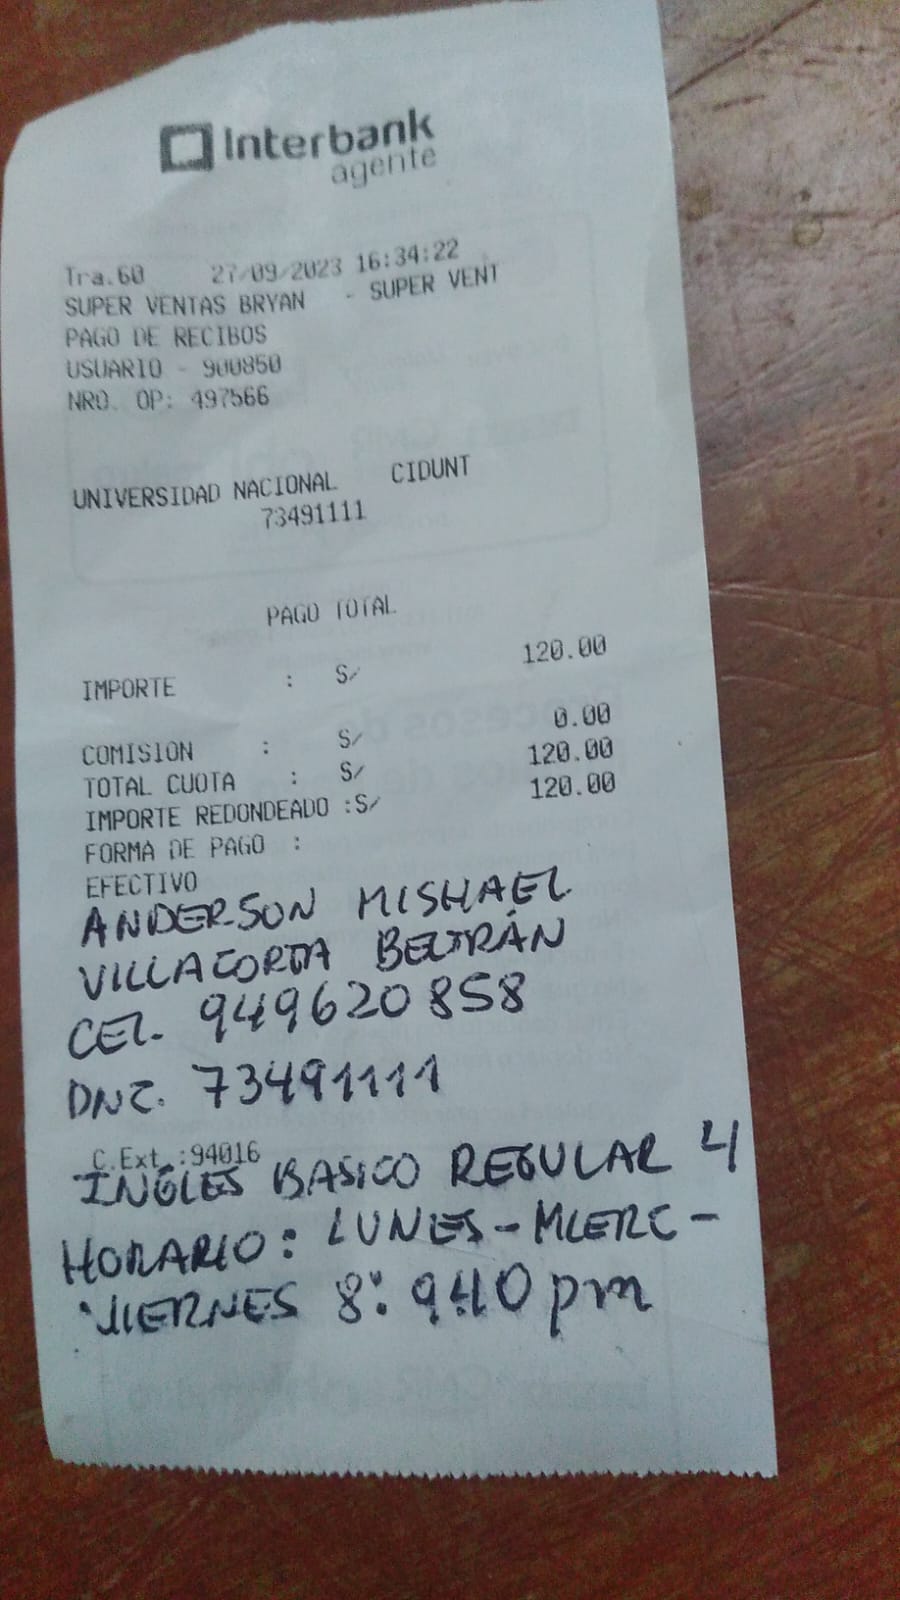 Interbank
agente
Tra.60 27/09/2023 16:34:22
SUPER VENTAS BRYAN - SUPER VENT
PAGO DE RECIBOS
USUARIO - 900850
NRO. OP: 497566
UNIVERSIDAD NACIONAL CIDUNT
73491111
PAGO TOTAL
IMPORTE : S/ 120.00
COMISION : S/ 0.00
TOTAL CUOTA : S/ 120.00
IMPORTE REDONDEADO :S/ 120.00
FORMA DE PAGO :
EFECTIVO
ANDERSON MISHAEL
VILLACORTA BELTRÁN
CEL. 949620858
DNI. 73491111
C.Ext.:94016
INGLES BASICO REGULAR 4
HORARIO: LUNES-MIERC-
VIERNES 8: 9:40 pm